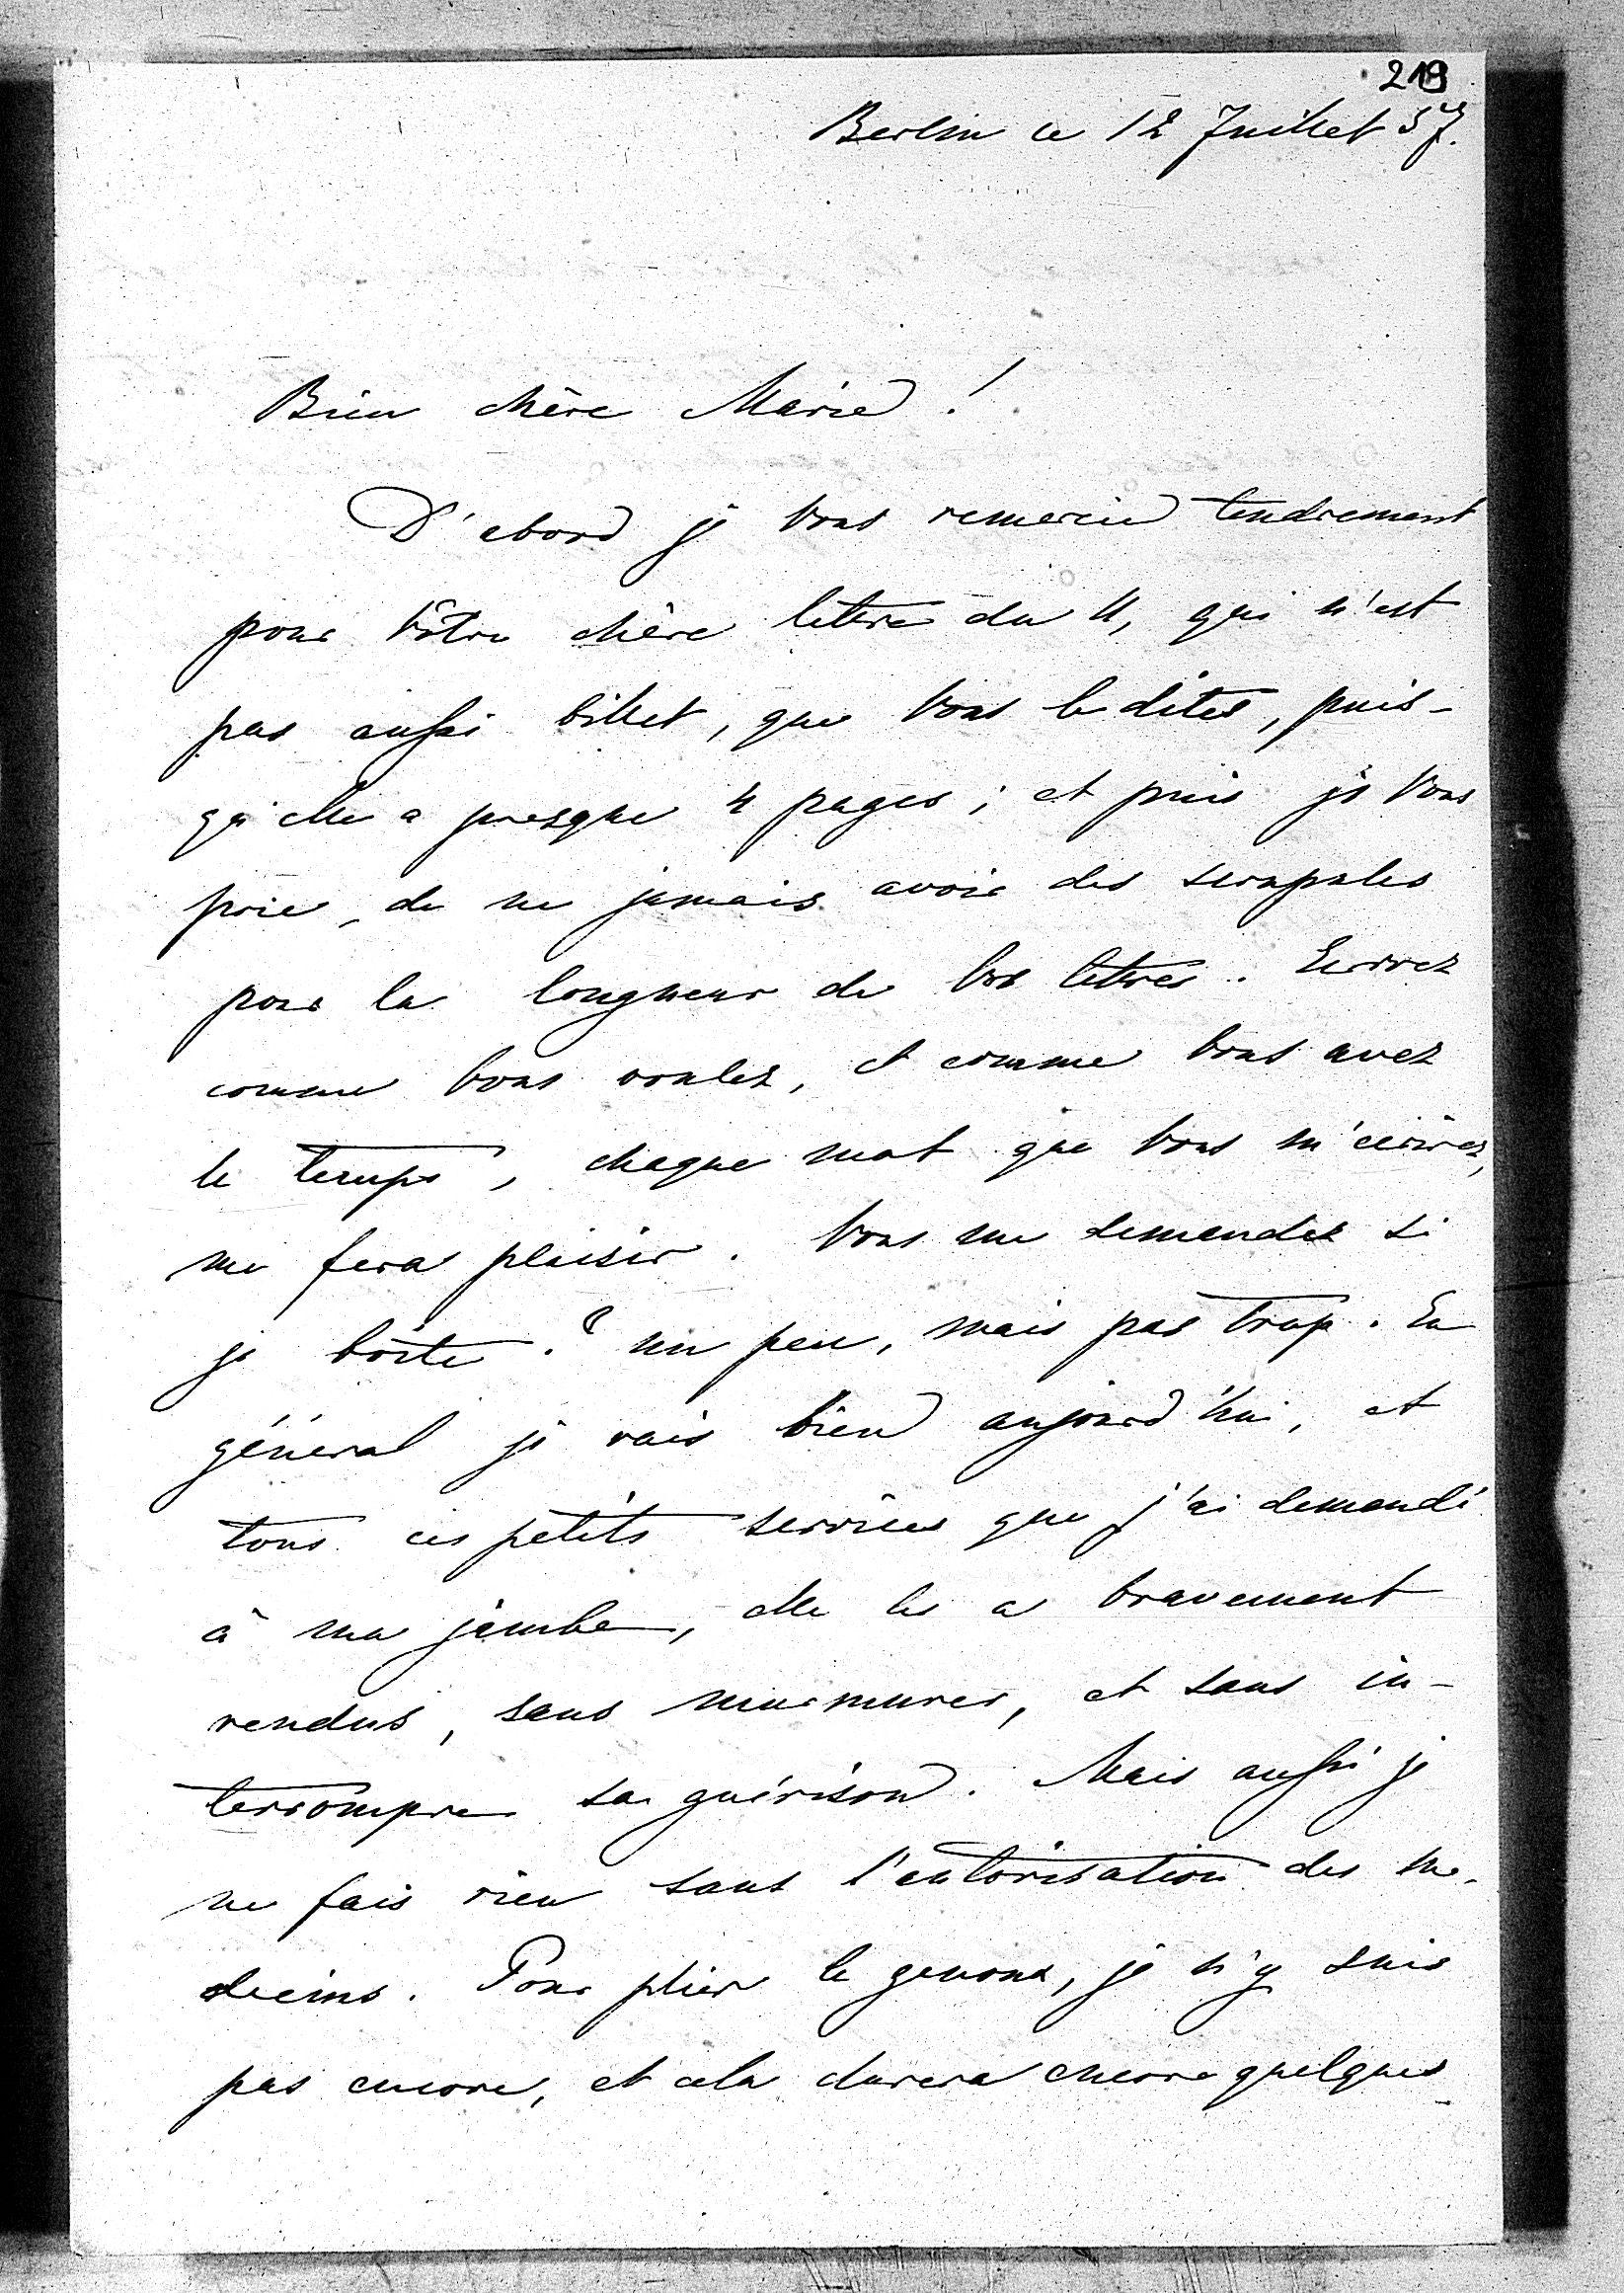 219
Berlin ce 12 Juillet 57.
Bien chère Marie !
D'abord je Vous remercie tendrement
pour Vôtre chère lettre du 11, qui n'est
pas aussi billet, que Vous le dites, puis-
qu'elle a presque 4 pages ; et puis je Vous
prie, de ne jamais avoir des scrupules
pour la longueur de Vos lettres. Ecrivez
comme Vous voulez, et comme Vous avez
le temps, chaque mot que Vous m'écrivez,
me fera plaisir. Vous me demandez si
je boîte ? un peu, mais pas trop. En
général je vais bien aujourd'hui, et
tous ces petits services que j'ai demandé
à ma jambe, elle les a bravement
rendus, sans murmurer, et sans in-
terrompre sa guérison. Mais aussi je
ne fais rien sans l'autorisation des me-
decins. Pour plier le genoux, je n'y suis
pas encore, et cela durera encore quelques